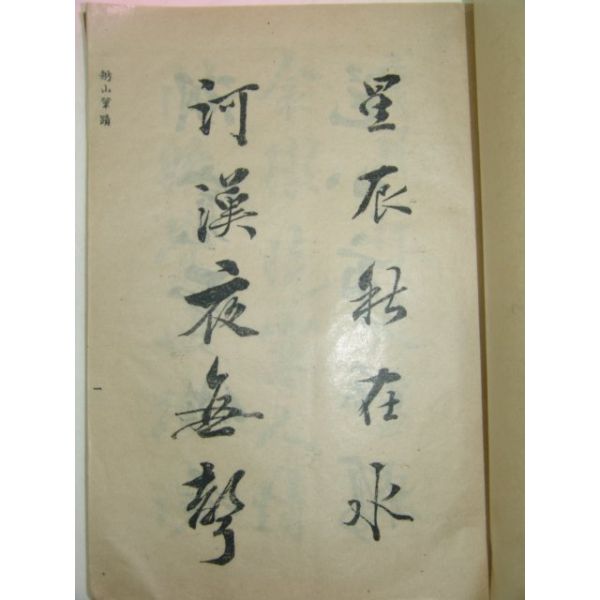 星辰秋在水
河漢夜無聲
舫山筆蹟
一